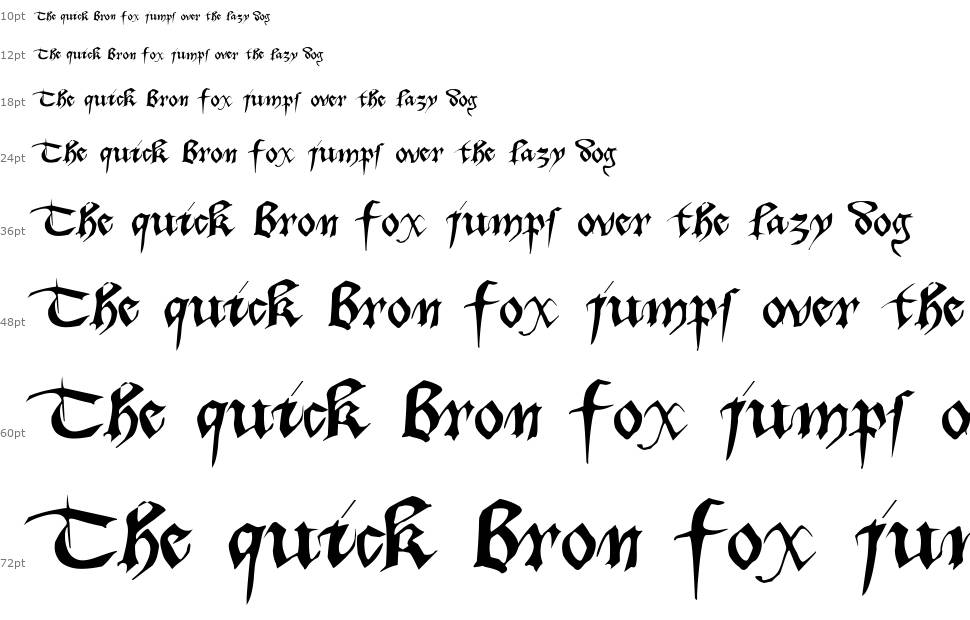 10pt The quick Bron fox jumpſ over the lazy dog
12pt The quick Bron fox jumpſ over the lazy dog
18pt The quick Bron fox jumpſ over the lazy dog
24pt The quick Bron fox jumpſ over the lazy dog
36pt The quick Bron fox jumpſ over the lazy dog
48pt The quick Bron fox jumpſ over the
60pt The quick Bron fox jumpſ o
72pt The quick Bron fox jum